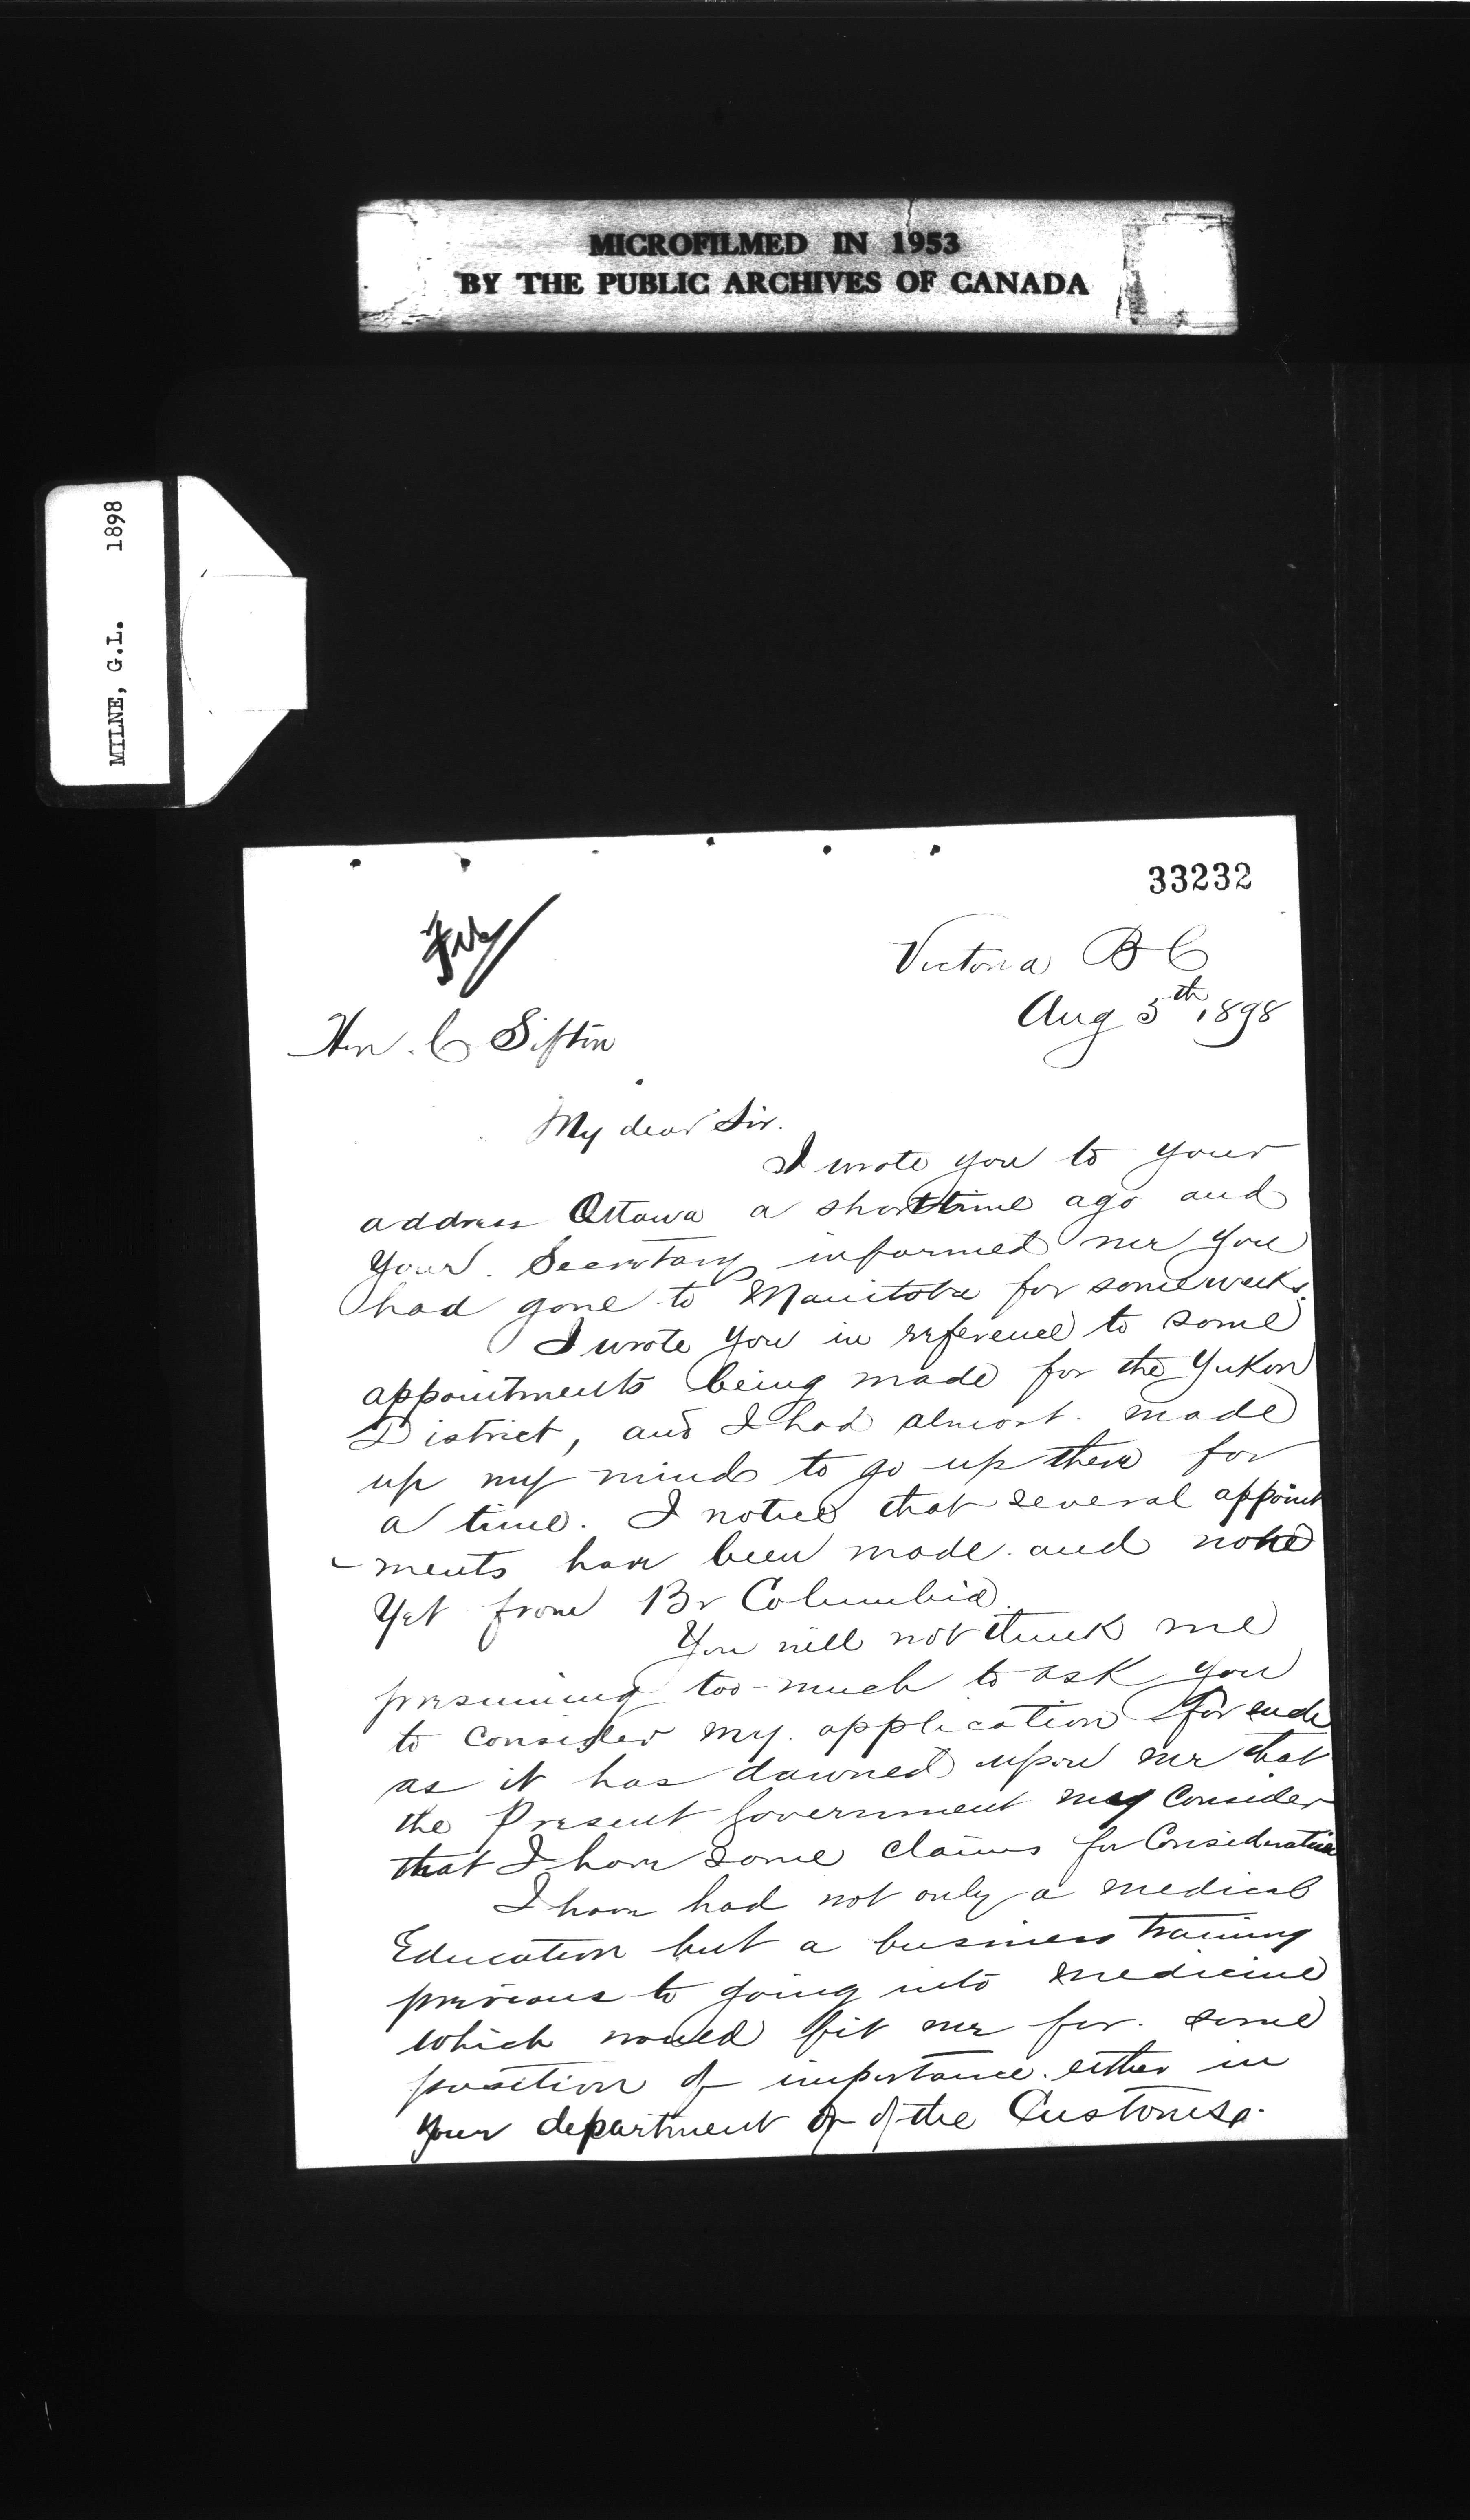 MICROFILMED IN 1953
BY THE PUBLIC ARCHIVES OF CANADA
MILNE, G.L. 1898
33232
Victoria B C
Aug 5th 1898
Hon. C Sifton
My dear Sir.
I wrote you to your
address Ottawa a short time ago and
your Secretary informed me you
had gone to Manitoba for some weeks.
I wrote you in reference to some
appointments being made for the Yukon
District, and I had almost made
up my mind to go up there for
a time. I notice that several appoint
-ments have been made and none
yet from Br Columbia.
You will not think me
presuming too-much to ask you
to consider my application for such
as it has dawned upon me that
the Present Government may Consider
that I have some claims for Consideration
I have had not only a medical
Education but a business training
previous to going into medicine
which would fit me for some
position of importance either in
your department or of the Customs.